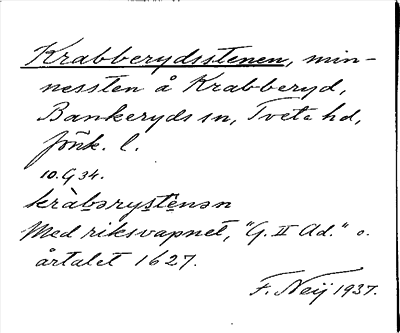 Krabberydsstenen, min-
nessten å Krabberyd,
Bankeryds sn, Tveta hd,
Jönk. l.
10. G 34.
kràbərystenən
Med riksvapnet, "G. II Ad." o.
årtalet 1627.
F. Neij 1937.